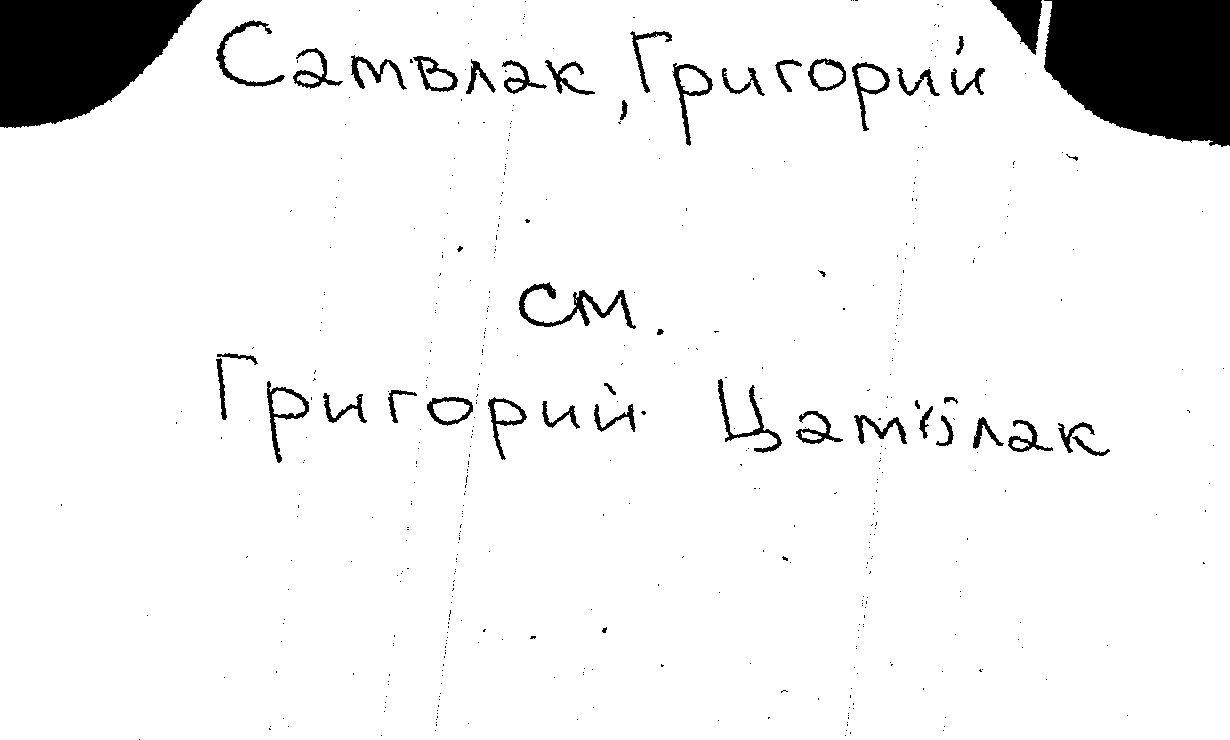 Самвлак, Григорий
см.
Григорий Цамблак